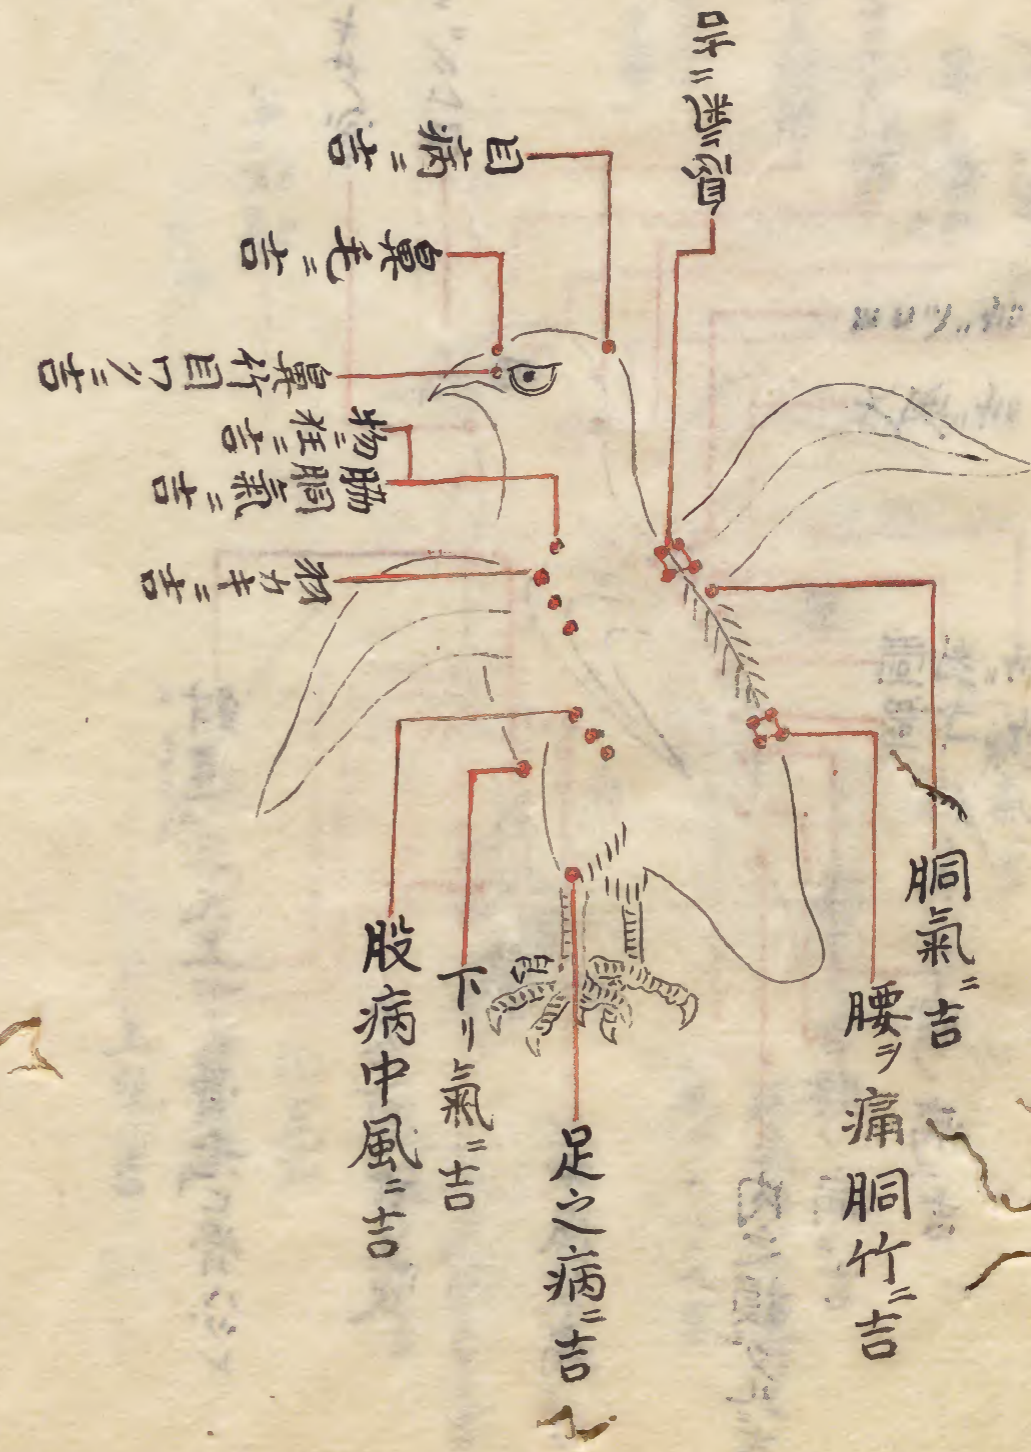 目病ニ吉
鼻毛ニ吉
鼻竹目ワノニ吉
物ニ狂ニ吉
脇胴氣ニ吉
物カキニ吉
胴氣ニ吉
腰ヲ痛胴竹ニ吉
足之病ニ吉
下リ氣ニ吉
股病中風ニ吉